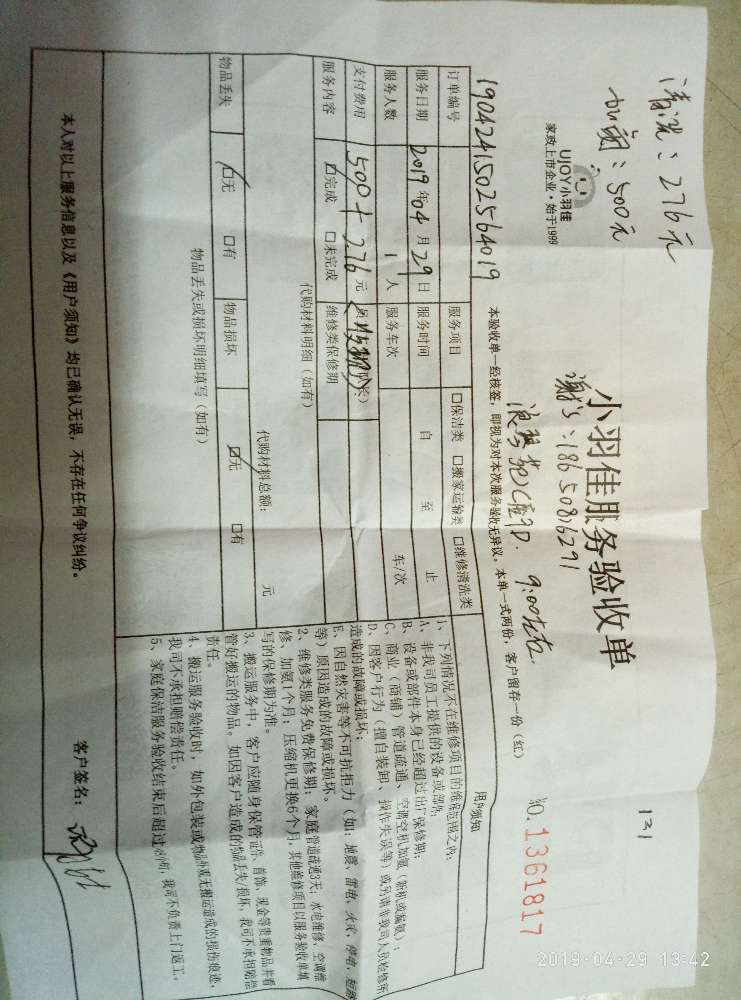 131
清洗：276元
加氟：500元
UJOY小羽佳
家政上市企业·始于1999
小羽佳服务验收单
NO.1361817
谢's：18650816291
9:00左右
本验收单一经核签，即视为对本次服务验收无异议。本单一式两份，客户留存一份（红）
19042415025640​19
订单编号
服务项目 口保洁类 口搬家运输类 口维修清洗类
服务日期 2019年04月29日 服务时间 自 至 止
服务人数 1人 服务车次 车/次
支付费用 500+276元
服务内容 口完成 口未完成 维修类保修期
代购材料明细（如有）
代购材料总额： 元
物品丢失 口无 口有 物品损坏 口无 口有
物品丢失或损坏明细填写（如有）
用户须知
1、下列情况不在维修项目的维保范围之内：
A、非我司员工提供的设备或部件；
B、设备或部件本身已经超过出厂保修期；
C、商业（商铺）管道疏通、空调空机加氨（新机或漏氨）；
D、因客户行为（擅自装卸、操作失误等）或另请非我司人员检修所
造成的故障或损坏；
E、因自然灾害等不可抗拒力（如：地震，雷电，火灾，停电，短路
等）原因造成的故障或损坏。
2、维修类服务免费保修期：家庭管道疏通3天；水电维修、空调维
修、加氨1个月；压缩机更换6个月，其他维修项目以服务验收单填
写的保修期为准。
3、搬运服务中，客户应随身保管证件、首饰、现金等贵重物品并看
管好搬运的物品。如因客户造成的物品丢失/损坏，我司不承担赔偿
责任。
4、搬运服务验收时，如外包装或物品外观无搬运造成的损伤痕迹，
我司不承担赔偿责任。
5、家庭保洁服务验收结束后超过48小时，我司不负责上门返工。
本人对以上服务信息以及《用户须知》均已确认无误，不存在任何争议纠纷。
客户签名：
2019-04-29 13:42